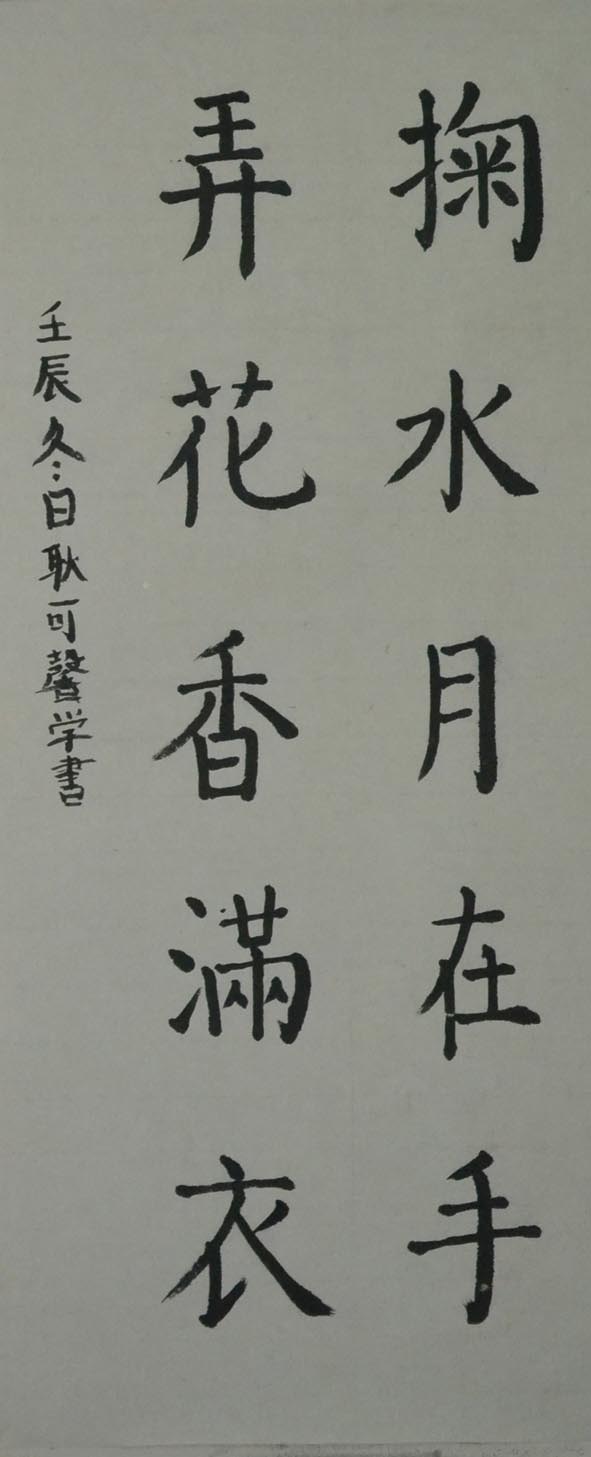 掬水月在手
弄花香滿衣
壬辰冬日耿可馨学書